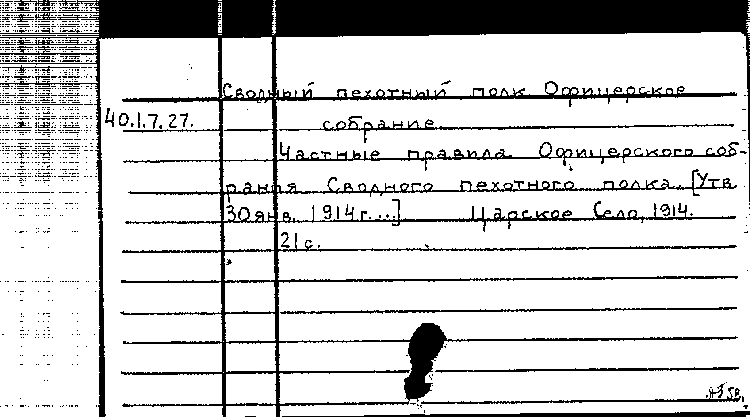 Сводный пехотный полк Офицерское
40.1.7.27. собрание
Частные правила Офицерского соб-
рания Сводного пехотного полка. [Утв
30 янв. 1914 г....] Царское Село, 1914.
21 с.